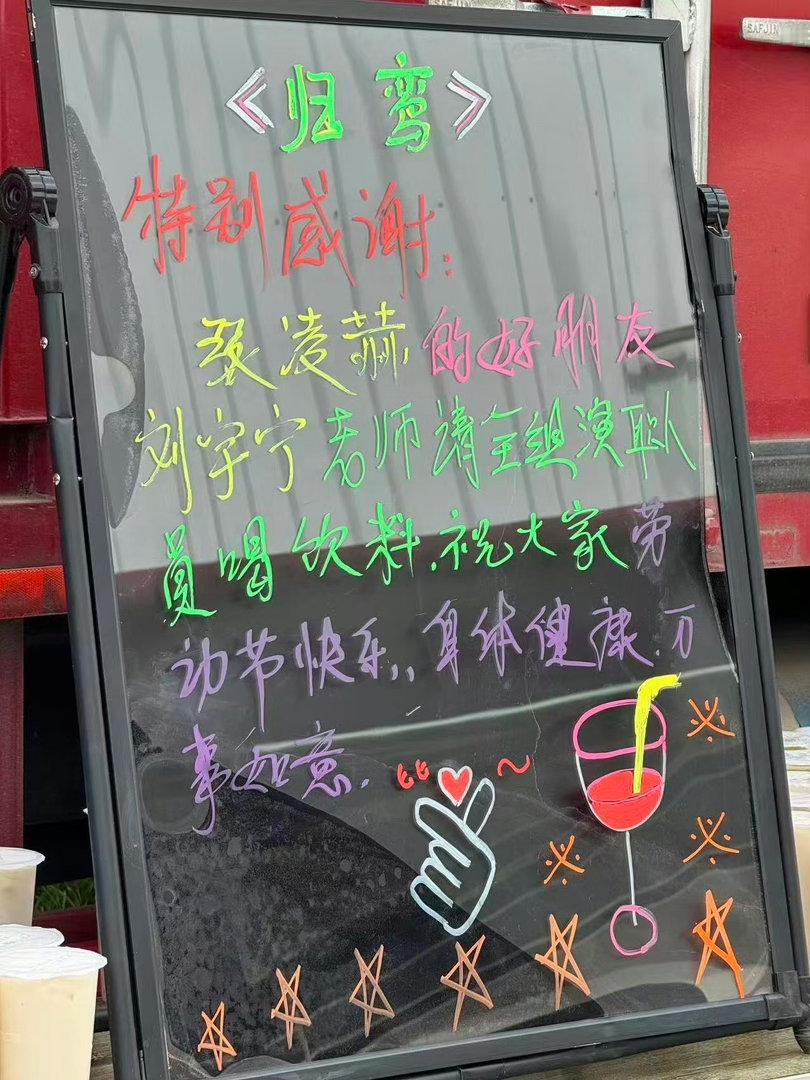 《归鸾》
特别感谢:
张凌赫的好朋友
刘宇宁老师请全组演职人
员喝饮料.祝大家劳
动节快乐,.身体健康.万
事如意.
SAFJIN